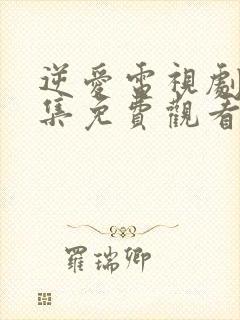 逆愛電視劇
集免費觀看
羅瑞卿